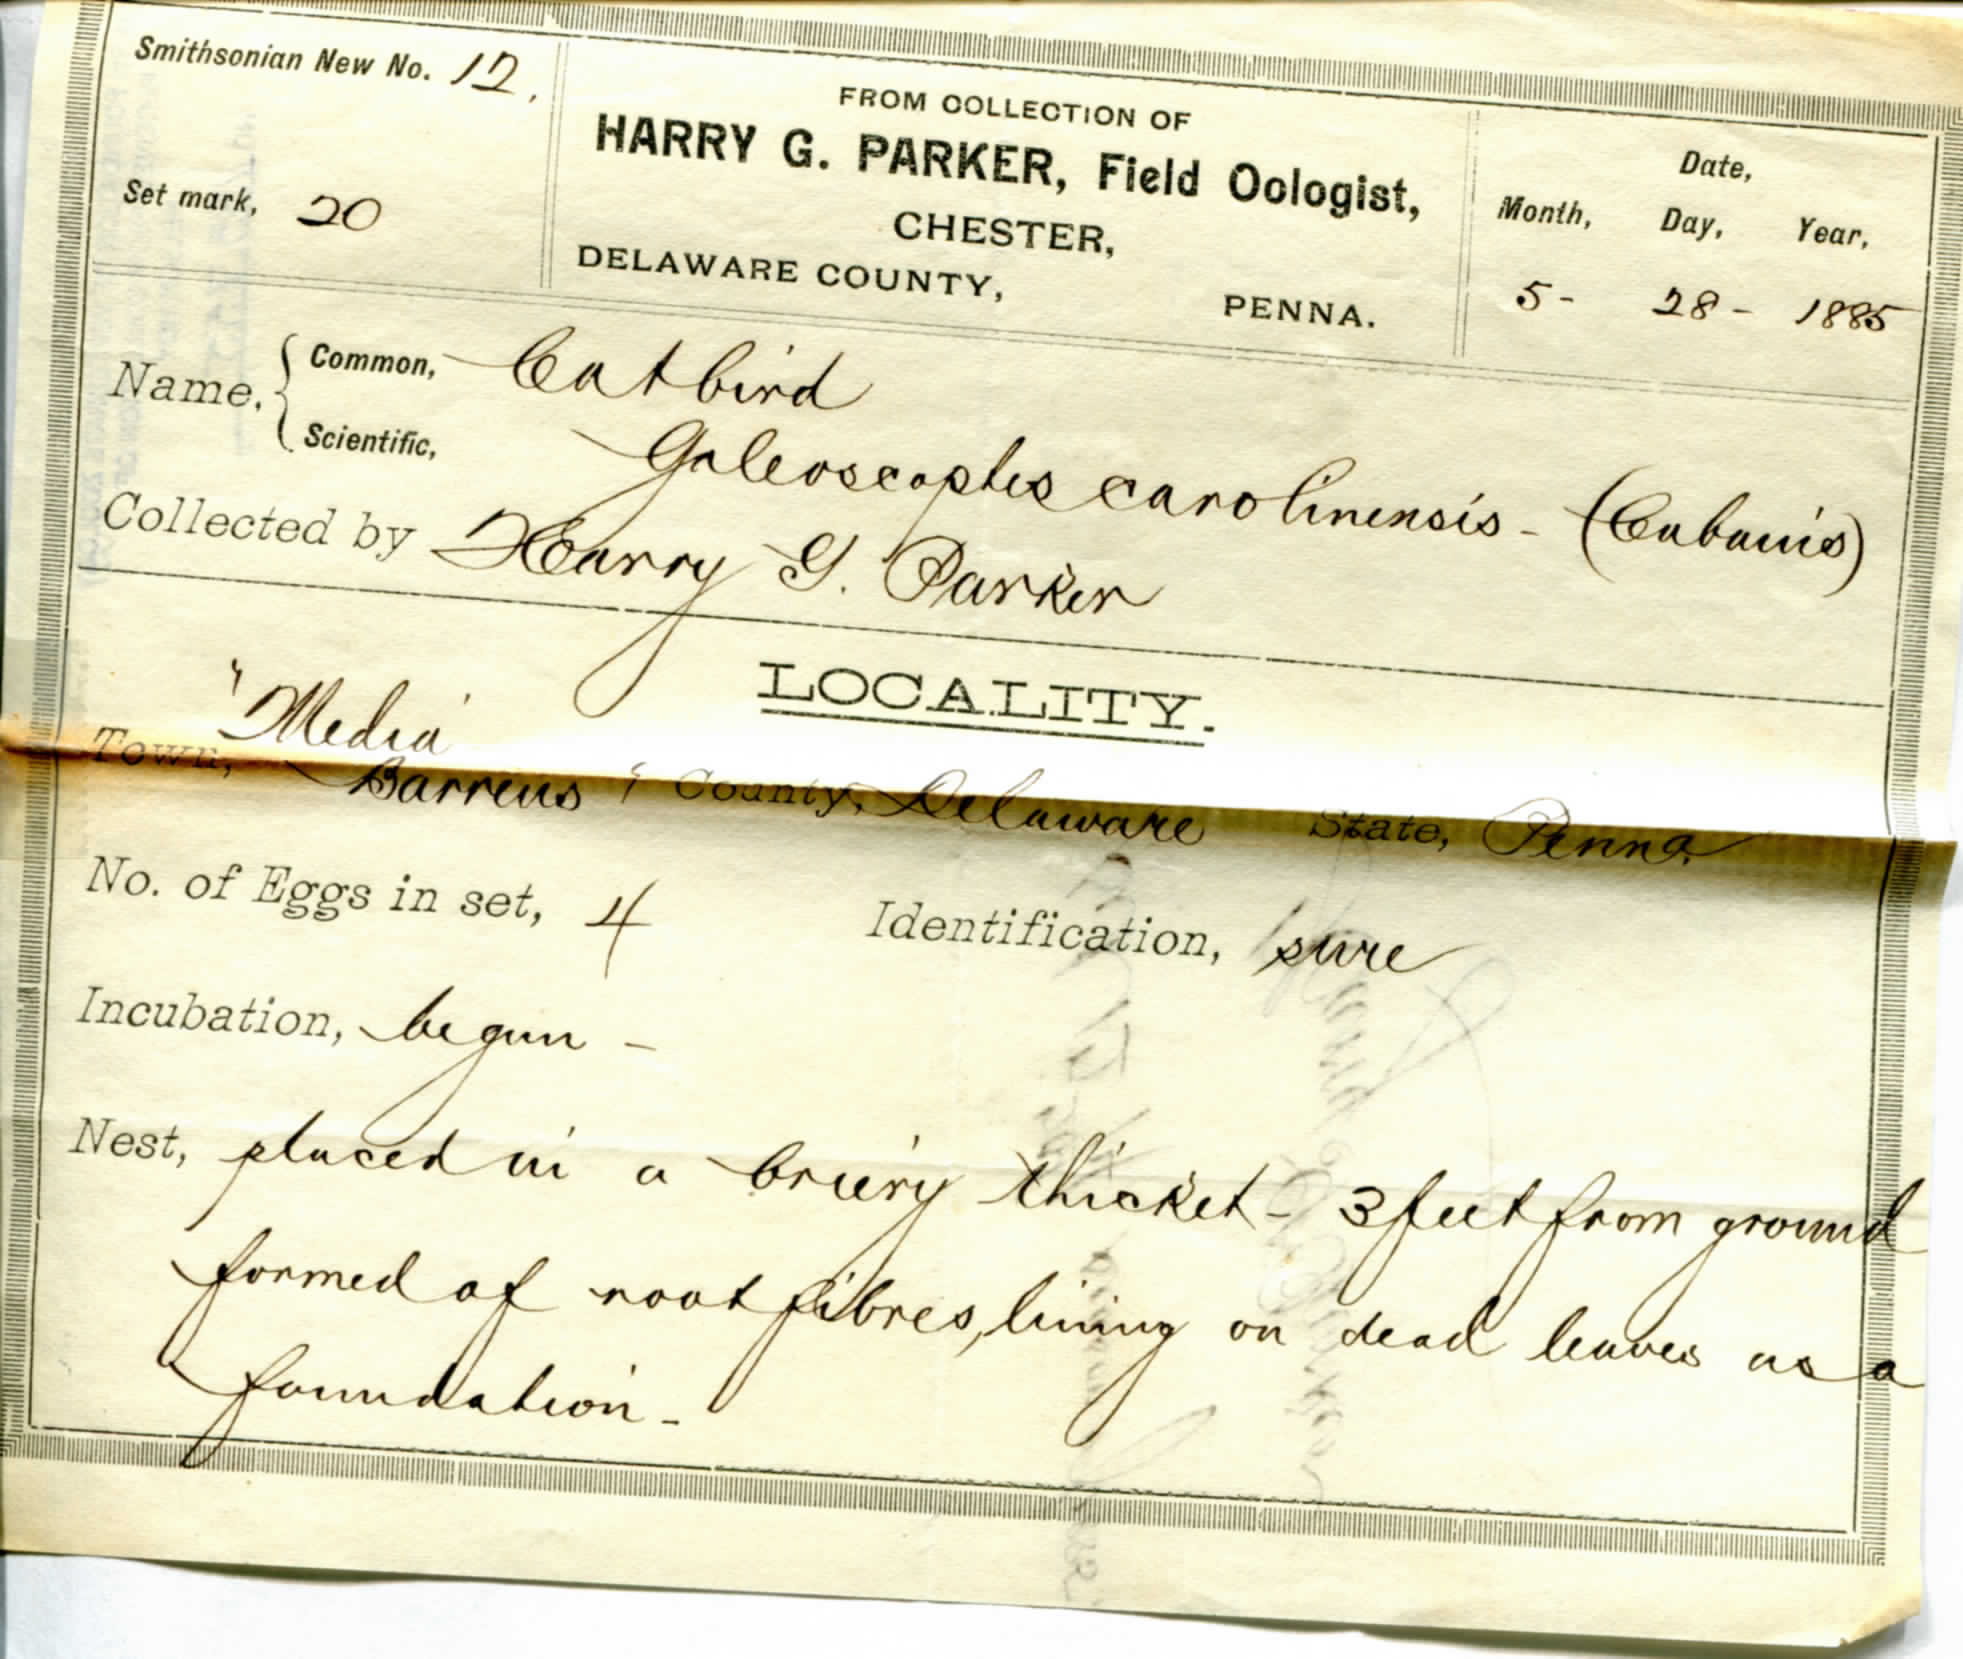 Smithsonian New No. 12.
Set mark, 20
FROM COLLECTION OF
HARRY G. PARKER, Field Oologist,
CHESTER,
DELAWARE COUNTY, PENNA.
Date,
Month, Day, Year,
5 - 28 - 1885
Name, { Common, Catbird
Scientific, Galeoscoptes carolinensis - (Cabanis)
Collected by Harry G. Parker
LOCALITY.
Town, "Media
Barrens" County, Delaware State, Penna.
No. of Eggs in set, 4 Identification, sure
Incubation, begun -
Nest, placed in a briery thicket - 3 feet from ground
formed of root fibres, lining on dead leaves as a
foundation -